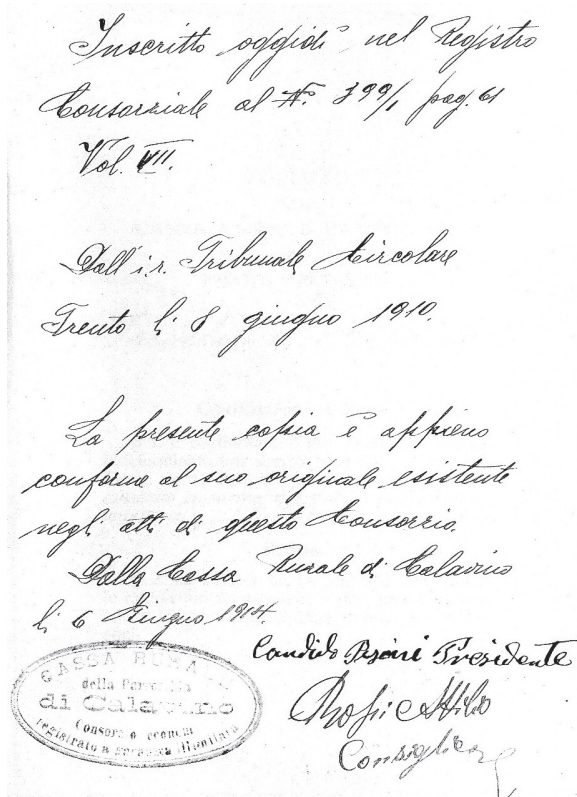 Inscritto oggidì nel Registro
Consorziale al No. 399/1 pag. 61
Vol. VII.
Dall' i. r. Tribunale Circolare
Trento li 8 giugno 1910.
La presente copia è appieno
conforme al suo originale esistente
negli atti di questo Consorzio.
Dalla Cassa Rurale di Calavino
li 6 Giugno 1914.
Candido Pisoni Presidente
Attilio
Consigliere
CASSA RURALE
della Parrocchia
di Calavino
Consorzio econom
registrato a garanzia illimitata